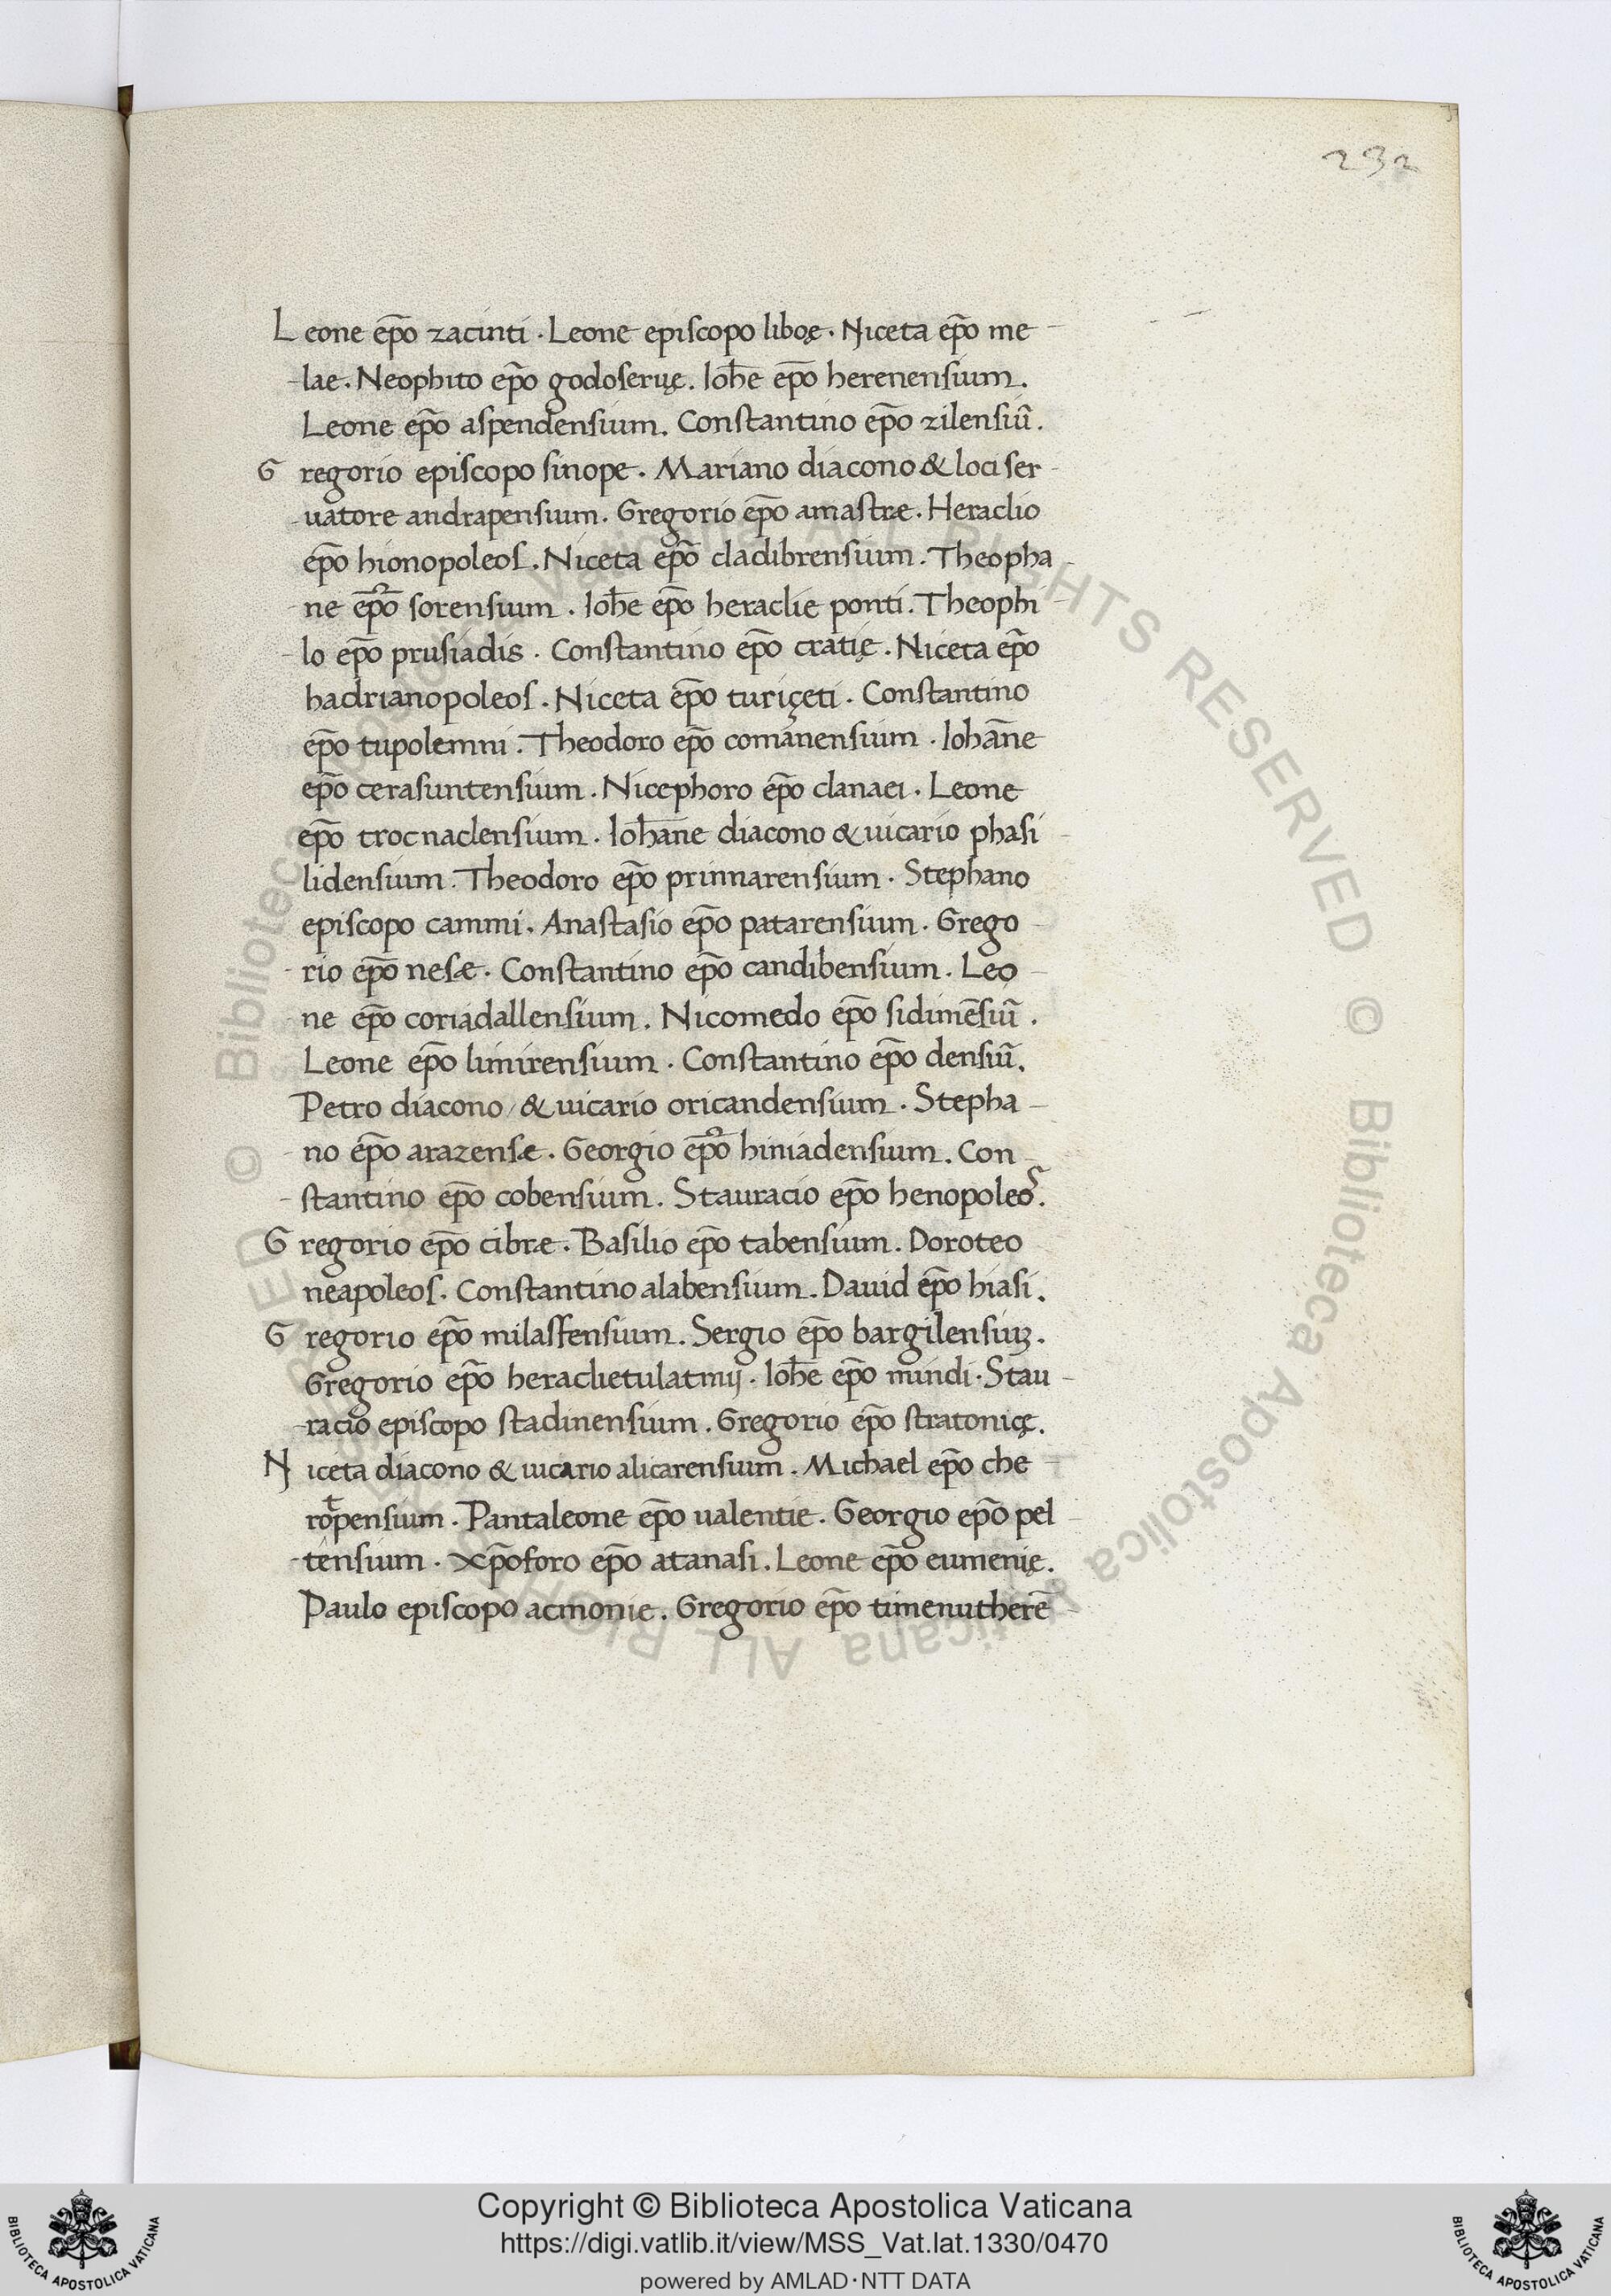 232
Leone ep̄o zacinti · Leone episcopo liboę · Niceta ep̄o me-
-lae · Neophito ep̄o godoseruę · Ioh̄e ep̄o herenensium.
Leone ep̄o aspendensium. Constantino ep̄o zilensiū.
Gregorio episcopo sinope · Mariano diacono & loci ser-
-uatore andrapensium. Gregorio ep̄o amastræ · Heraclio
ep̄o hionopoleos. Niceta ep̄o cladibrensium. Theopha-
-ne ep̄o sorensium · Ioh̄e ep̄o heraclie ponti. Theophi-
-lo ep̄o prusiadis · Constantino ep̄o cratię · Niceta ep̄o
hadrianopoleos · Niceta ep̄o turięeti · Constantino
ep̄o tupolemni · Theodoro ep̄o comanensium · Iohāne
ep̄o cerasuntensium · Nicephoro ep̄o clanaei · Leone
ep̄o trocnaclensium · Iohāne diacono & uicario phasi-
lidensium · Theodoro ep̄o prinnarensium · Stephano
episcopo cammi. Anastasio ep̄o patarensium · Grego-
-rio ep̄o nesæ · Constantino ep̄o candibensium · Leo-
ne ep̄o coriadallensium. Nicomedo ep̄o sidimēsiū.
Leone ep̄o limirensium · Constantino ep̄o densiū.
Petro diacono / & uicario oricandensium · Stepha-
-no ep̄o arazensæ · Georgio ep̄o hiniadensium. Con-
-stantino ep̄o cobensium. Stauracio ep̄o henopoleos.
Gregorio ep̄o cibræ · Basilio ep̄o tabensium. Doroteo
neapoleos. Constantino alabensium. Dauid ep̄o hiasi.
Gregorio ep̄o milastensium. Sergio ep̄o bargilensiuʒ.
Gregorio ep̄o heraclietulatmij · Ioh̄e ep̄o mindi · Stau-
-racio episcopo stadinensium. Gregorio ep̄o stratonicę.
Niceta diacono & uicario alicarensium. Michael ep̄o che-
rotpensium · Pantaleone ep̄o ualentie. Georgio ep̄o pel-
-tensium · xp̄oforo ep̄o atanasi. Leone ep̄o eumenię.
Paulo episcopo acmonie. Gregorio ep̄o timenutherē-
© Biblioteca Apostolica Vaticana ALL RIGHTS RESERVED © Biblioteca Apostolica Vaticana ALL RIGHTS RESERVED
Copyright © Biblioteca Apostolica Vaticana
https://digi.vatlib.it/view/MSS_Vat.lat.1330/0470
powered by AMLAD·NTT DATA
BIBLIOTECA APOSTOLICA VATICANA
BIBLIOTECA APOSTOLICA VATICANA